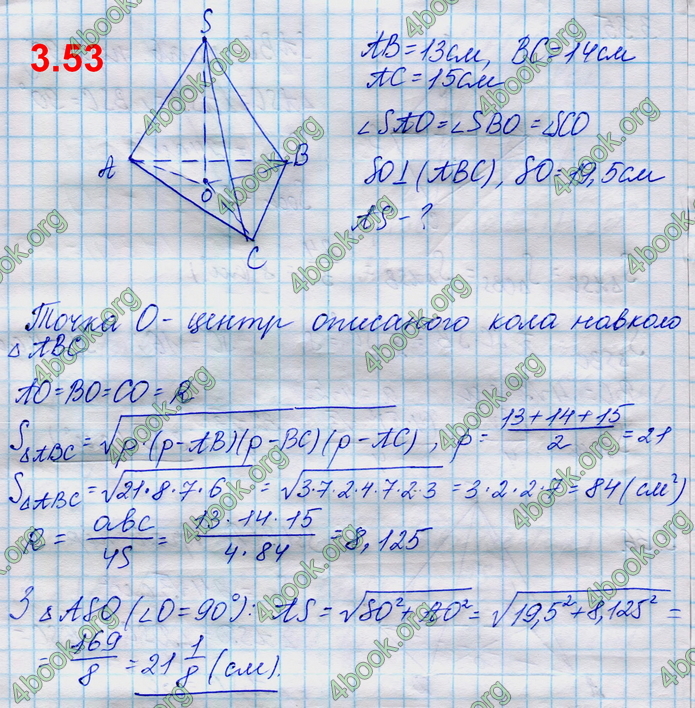 3.53
S
A
B
O
C
AB=13см, BC=14см
AC=15см
∠SAO=∠SBO=∠SCO
SO⊥(ABC), SO=19,5см
AS-?
Точка O - центр описаного кола навколо
△ABC
AO=BO=CO=R
S△ABC=√(p·(p-AB)(p-BC)(p-AC)), p=(13+14+15)/2=21
S△ABC=√(21·8·7·6)=√(3·7·2·4·7·2·3)=3·2·2·7=84(см²)
R=abc/4S=(13·14·15)/(4·84)=8,125
З △ASO(∠O=90°): AS=√(SO²+AO²)=√(19,5²+8,125²)=
=169/8=21 1/8(см).
4book.org